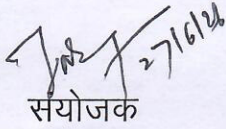 27/6/26
संयोजक